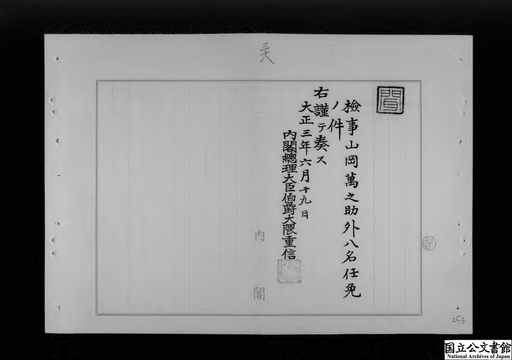 聞
檢事山岡萬之助外八名任免
ノ件
右謹テ奏ス
大正三年六月十九日
内閣總理大臣伯爵大隈重信
内閣
253
国立公文書館
National Archives of Japan